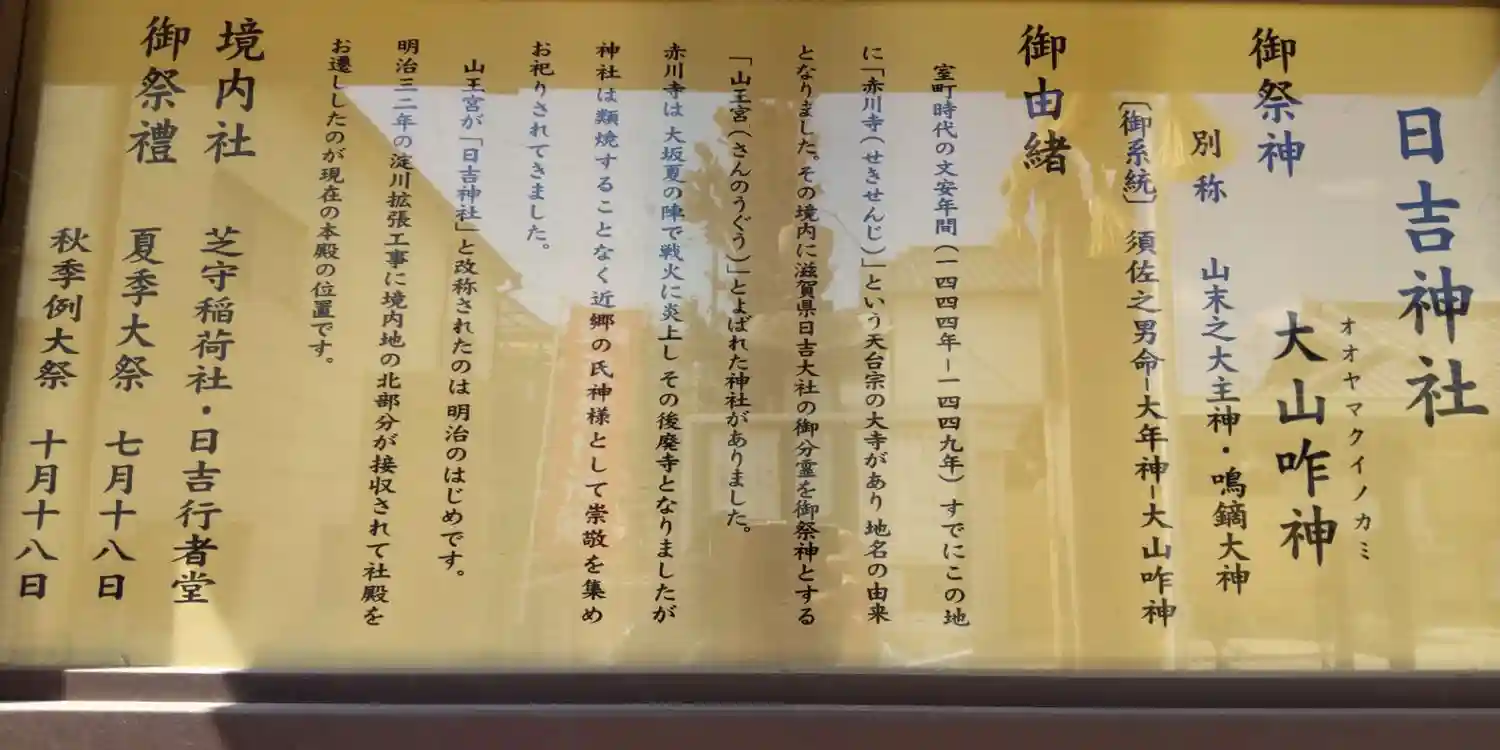 日吉神社
御祭神 大山咋神
オオヤマクイノカミ
別称 山末之大主神・鳴鏑大神
〔御系統〕 須佐之男命－大年神－大山咋神
御由緒
室町時代の文安年間(一四四四年－一四四九年)すでにこの地
に「赤川寺(せきせんじ)」という天台宗の大寺があり 地名の由来
となりました。その境内に滋賀県日吉大社の御分霊を御祭神とする
「山王宮(さんのうぐう)」とよばれた神社がありました。
赤川寺は 大坂夏の陣で戦火に炎上し その後廃寺となりましたが
神社は類焼することなく近郷の氏神様として崇敬を集め
お祀りされてきました。
山王宮が「日吉神社」と改称されたのは 明治のはじめです。
明治三二年の淀川拡張工事に境内地の北部分が接収されて社殿を
お遷ししたのが現在の本殿の位置です。
境内社 芝守稲荷社・日吉行者堂
御祭禮 夏季大祭 七月十八日
秋季例大祭 十月十八日